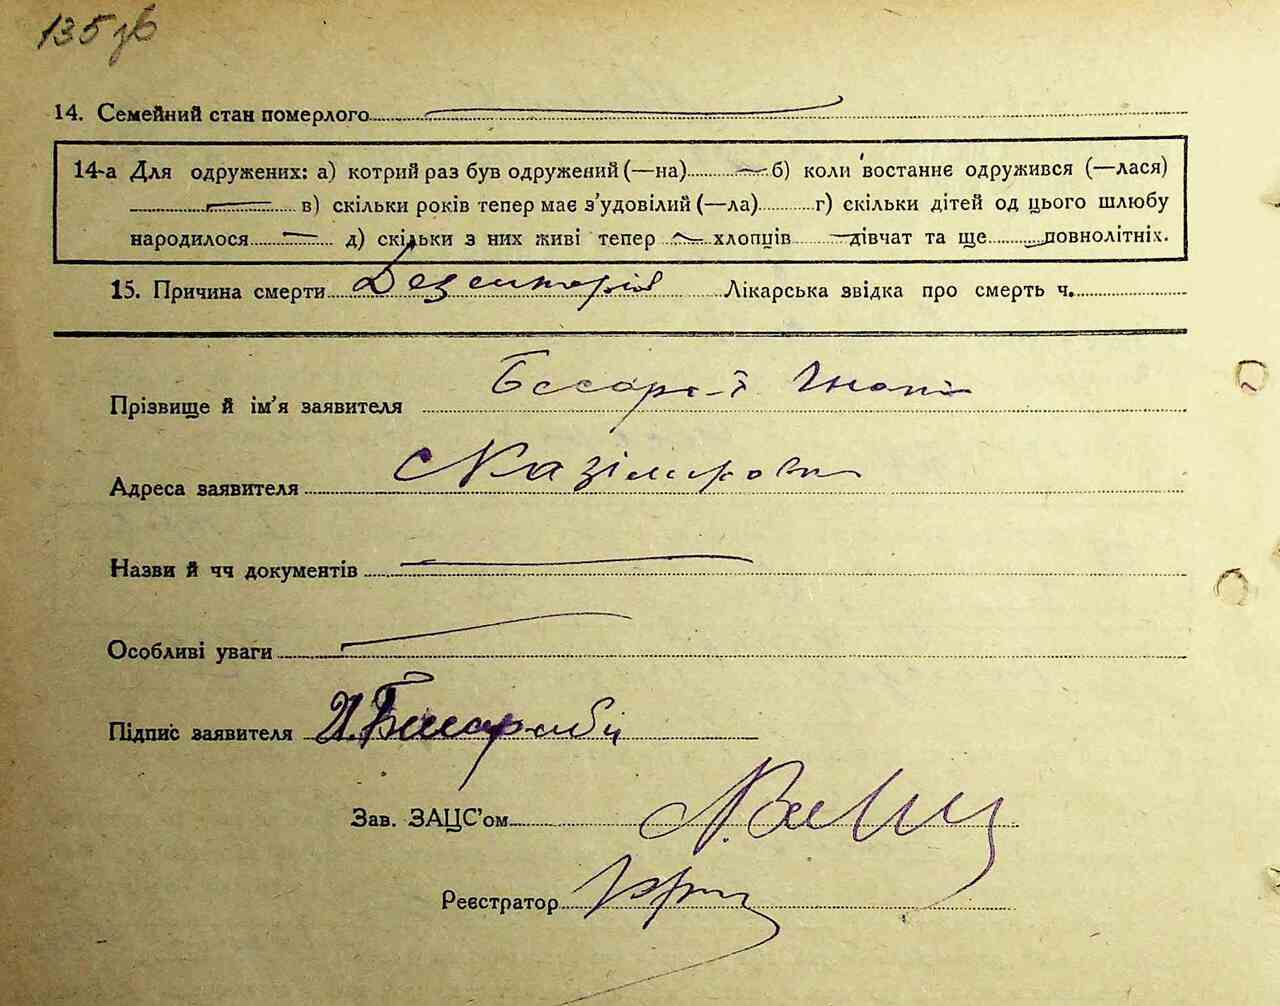 135 зв
14. Семейний стан померлого
14-а Для одружених: а) котрий раз був одружений (—на) б) коли востаннє одружився (—лася)
в) скільки років тепер має з'удовілий (—ла) г) скільки дітей од цього шлюбу
народилося д) скільки з них живі тепер хлопців дівчат та ще повнолітніх.
15. Причина смерти Дезентерія Лікарська звідка про смерть ч.
Прізвище й ім'я заявителя
Адреса заявителя
Назви й чч документів
Особливі уваги
Підпис заявителя
Зав. ЗАЦС'ом
Реєстратор